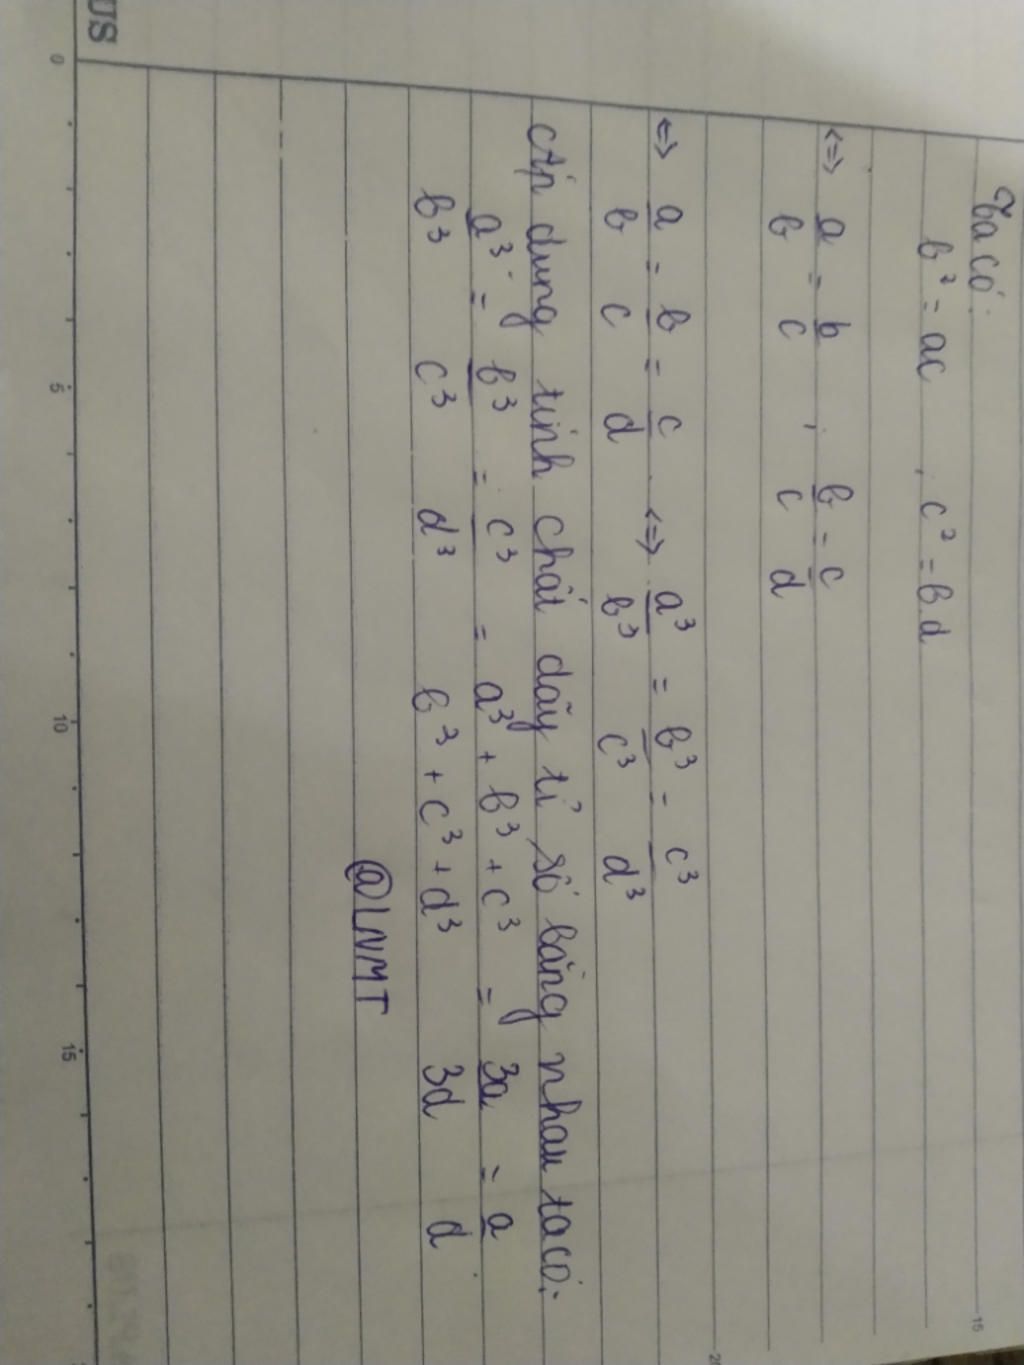 Ta có:
b² = ac , c² = b.d
<=> a/b = b/c , b/c = c/d
<=> a/b = b/c = c/d <=> a³/b³ = b³/c³ = c³/d³
Áp dụng tính chất dãy tỉ số bằng nhau ta có:
a³/b³ = b³/c³ = c³/d³ = a³ + b³ + c³/b³ + c³ + d³ = 3a/3d = a/d
@LNMT
US
0 5 10 15
15